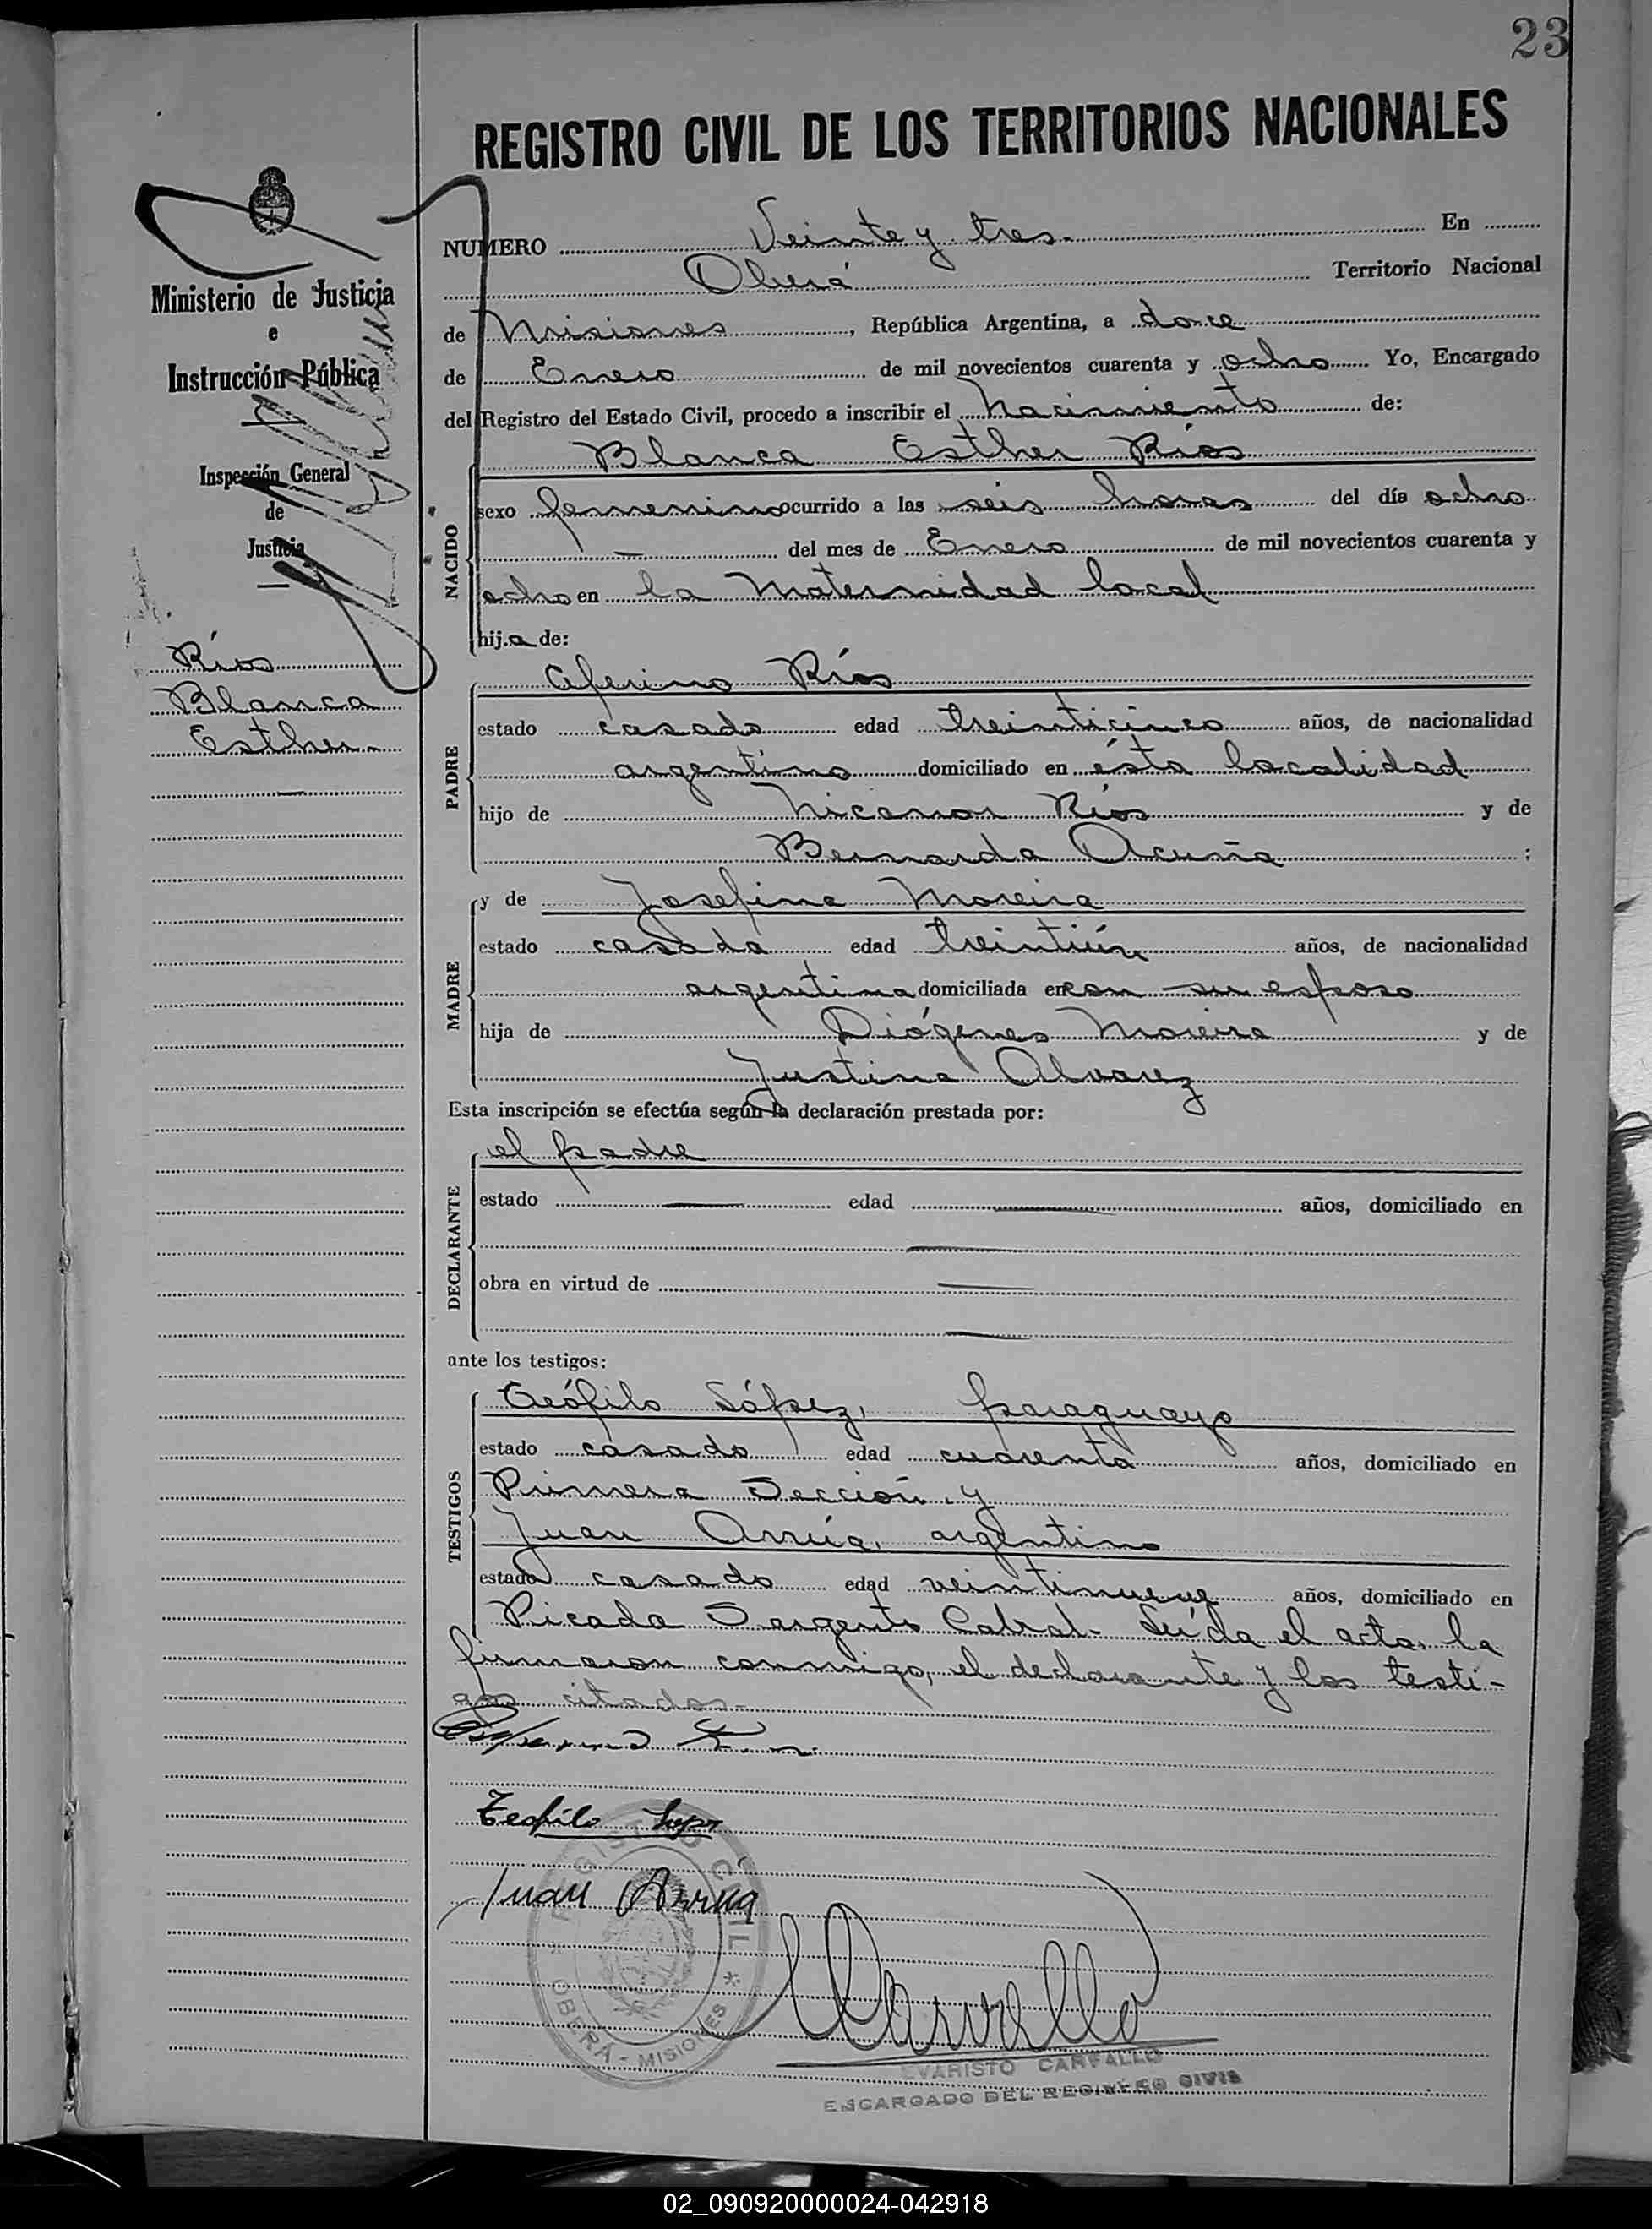 23
REGISTRO CIVIL DE LOS TERRITORIOS NACIONALES
Ministerio de Justicia
e
Instrucción Pública
Inspección General
de
Justicia
Ríos
Blanca
Esther.-
NUMERO Veinte y tres.- En
Oberá Territorio Nacional
de Misiones, República Argentina, a doce
de Enero de mil novecientos cuarenta y ocho Yo, Encargado
del Registro del Estado Civil, procedo a inscribir el Nacimiento de:
Blanca Esther Ríos
NACIDO
sexo femenino ocurrido a las seis horas del día ocho
— del mes de Enero de mil novecientos cuarenta y
ocho en la Maternidad local
hij.a de:
PADRE
Ceferino Ríos
estado casado edad treinticinco años, de nacionalidad
argentino domiciliado en ésta localidad
hijo de Nicanor Ríos y de
Bernarda Acuña ;
MADRE
y de Josefina Moreira
estado casada edad treintiún años, de nacionalidad
argentina domiciliada en con su esposo
hija de Diógenes Moreira y de
Justina Alvarez
Esta inscripción se efectúa según la declaración prestada por:
DECLARANTE
el padre
estado — edad — años, domiciliado en
—
obra en virtud de —
—
ante los testigos:
TESTIGOS
Teófilo López, paraguayo
estado casado edad cuarenta años, domiciliado en
Primera Sección, y
Juan Arrúa, argentino
estado casado edad veintinueve años, domiciliado en
Picada Sargento Cabral.- Leída el acta, la
firmaron conmigo, el declarante y los testi-
gos citados.-
Teofilo Lopez
Juan Arrua
REGISTRO CIVIL
OBERÁ - MISIONES
Carvallo
EVARISTO CARVALLO
ENCARGADO DEL REGISTRO CIVIL
02_090920000024-042918